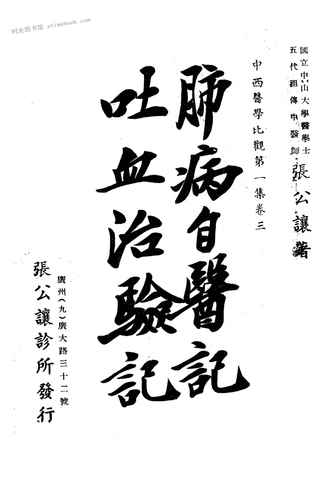 國立中山大學醫學士
五代祖傳中醫師
張公讓著
中西醫學比觀第一集卷三
肺病自醫記
吐血治驗記
廣州(九)廣大路三十二號
張公讓診所發行